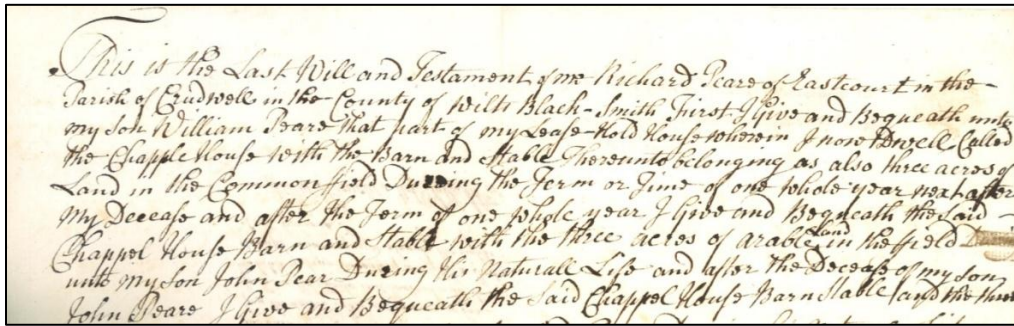 This is the Last Will and Testament of me Richard Peare of Eastcourt in the
Parish of Crudwell in the County of Wilts Black-Smith First I Give and Bequeath unto
my Son William Peare that part of my Lease Hold House wherein I now Dwell Called
the Chapple House with the Barn and Stable Thereunto belonging as also three acres of
Land in the Common field During the Term or Time of one whole year next after
My Decease and after the Term of one whole year I Give and Bequeath the Said
Chappel House Barn and Stable with the three acres of arable Land in the field
unto my Son John Pear During his Naturall Life and after the Decease of my Son
John Peare I Give and Bequeath the Said Chappel House Barn Stable and the three